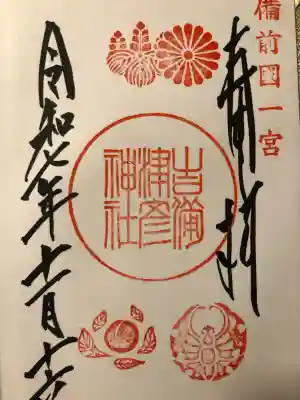 備前國一宮
奉拝
吉備
津彦
神社
令和七年十一月十六